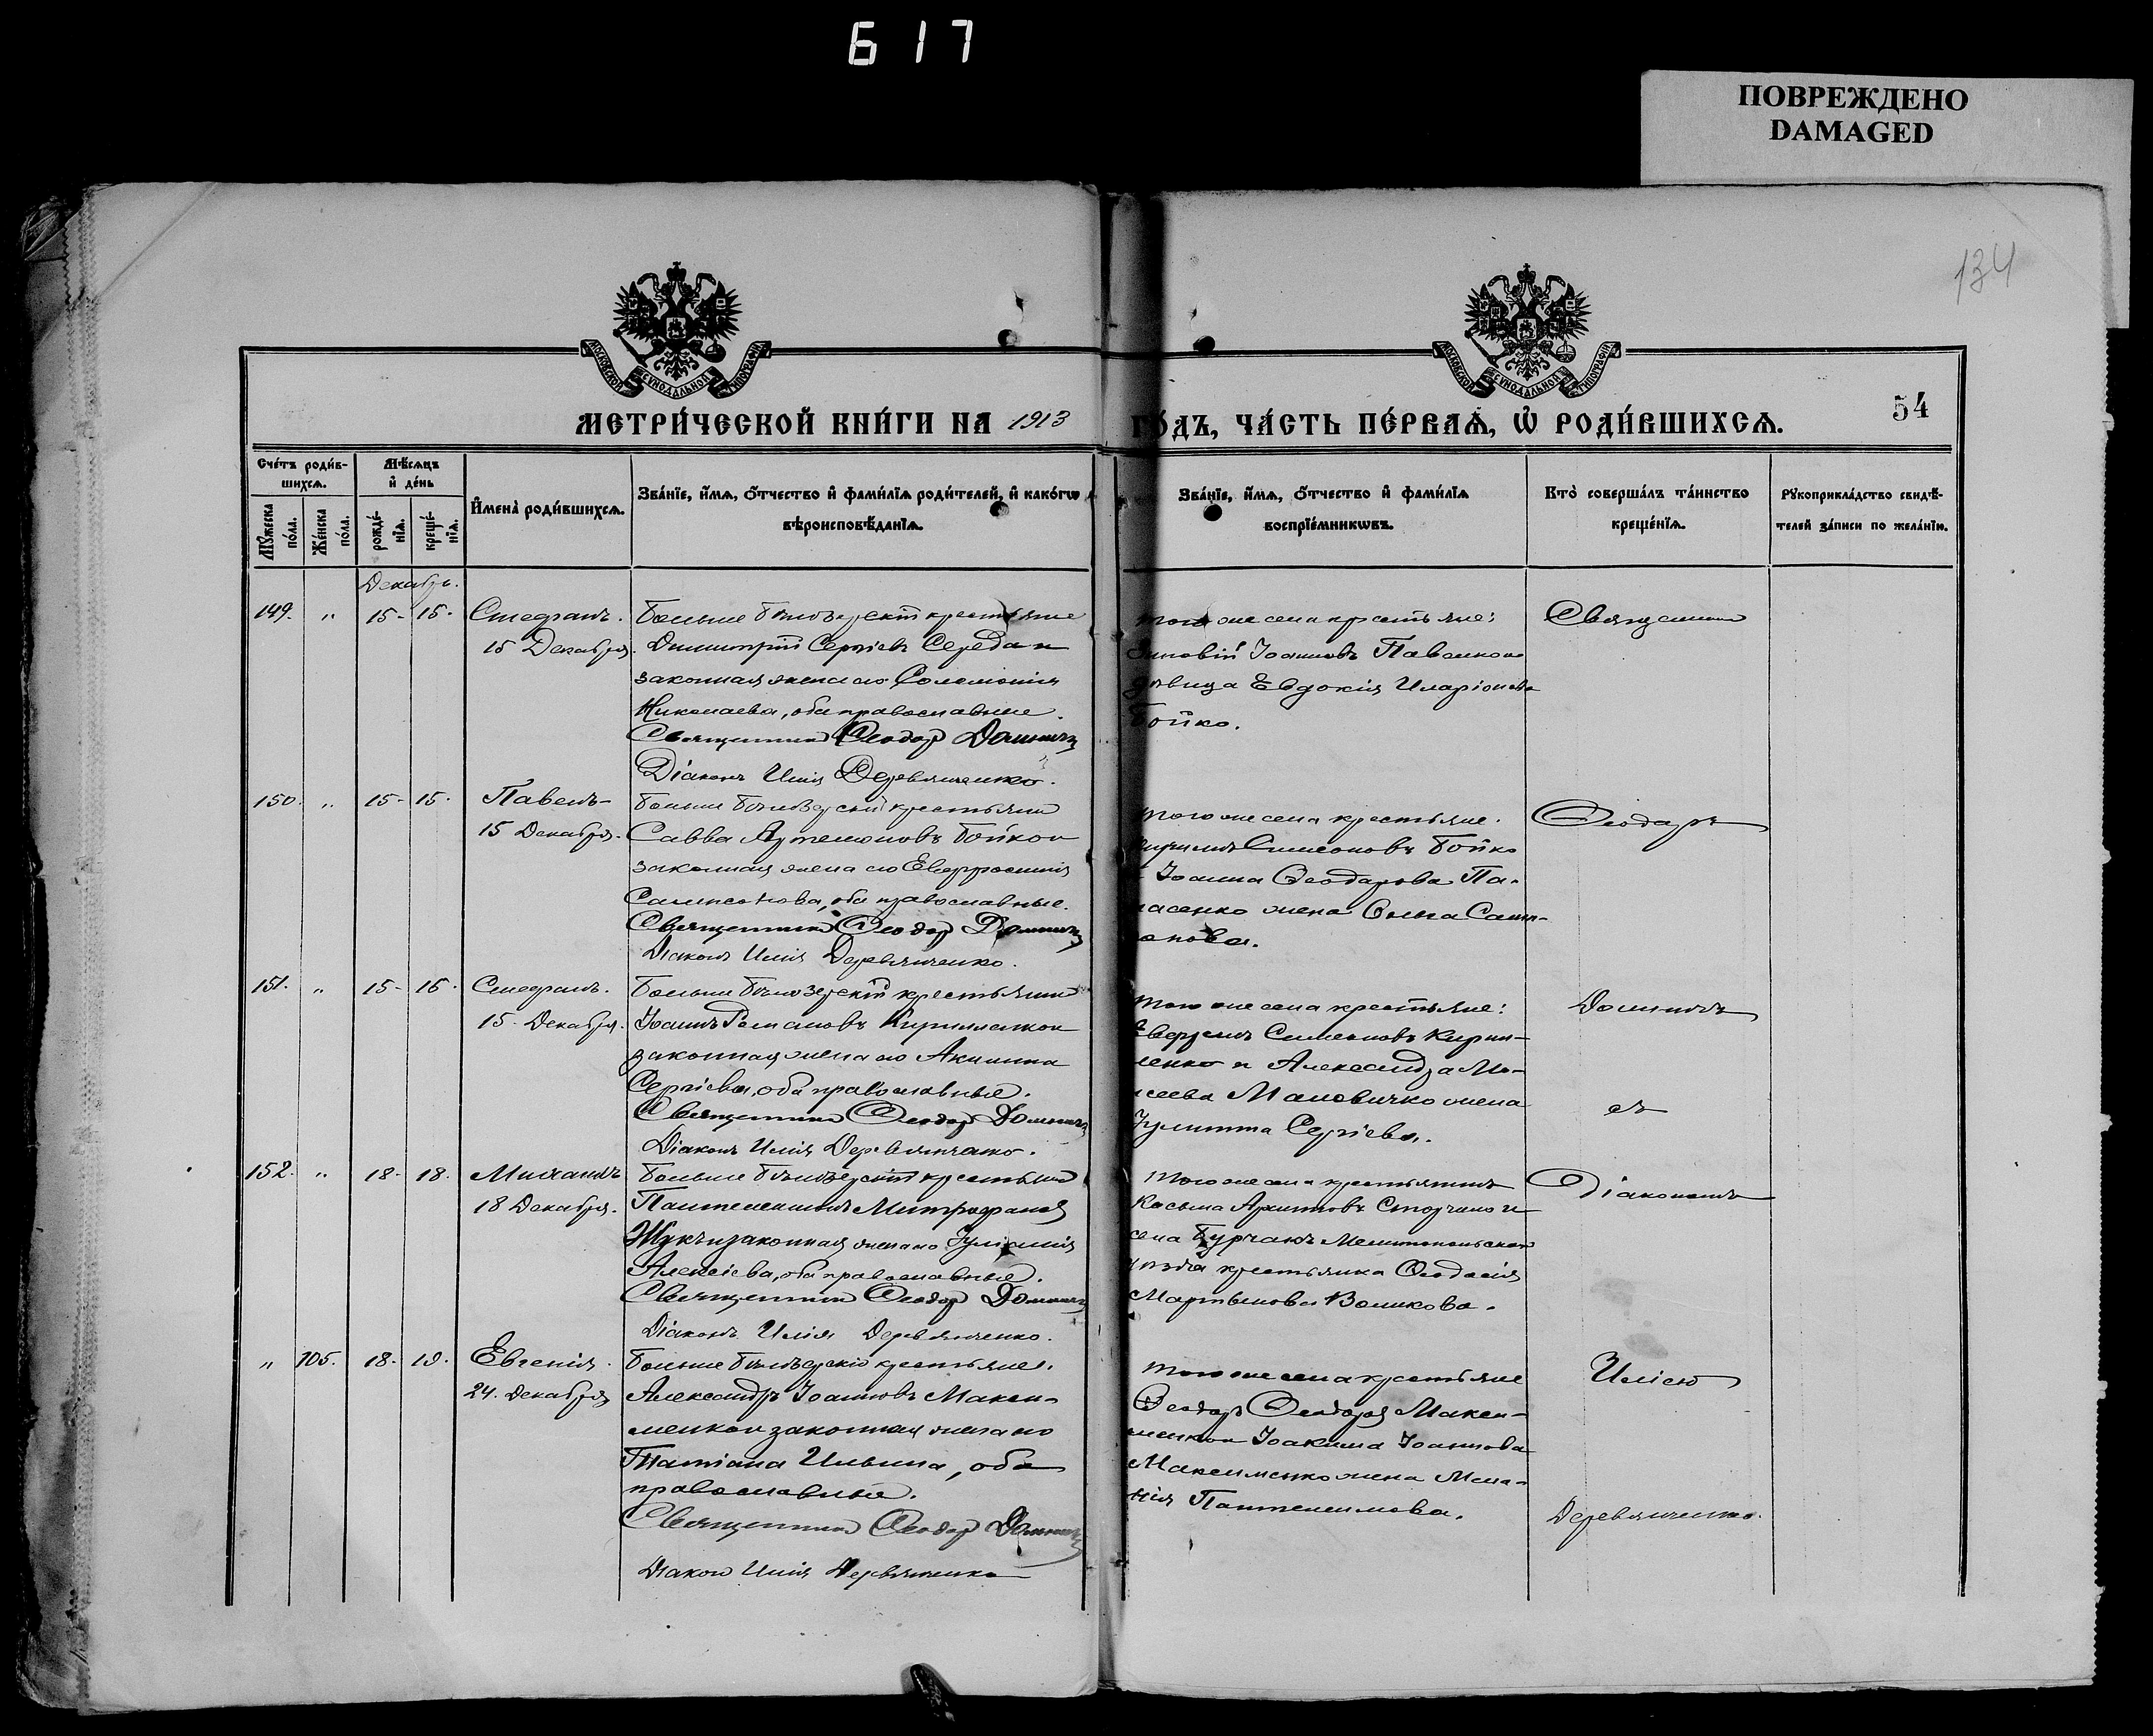 617
ПОВРЕЖДЕНО
DAMAGED
134
МОСКОВСКОЙ СѴНОДАЛЬНОЙ ТИПОГРАФІИ
МОСКОВСКОЙ СѴНОДАЛЬНОЙ ТИПОГРАФІИ
МЕТРИ́ЧЕСКОЙ КНИ́ГИ НА 1913 ГО́ДЪ, ЧА́СТЬ ПЕ́РВАѦ, Ѡ РОДИ́ВШИХСѦ.
54
Сче́тъ роди́в-
шихсѧ.
Мꙋ́жеска по́ла.
Же́нска по́ла.
Мѣ́сѧцъ
и҆ де́нь
рожде́-
нїѧ.
креще́-
нїѧ.
И҆мена̀ роди́вшихсѧ.
Зва́нїе, и҆́мѧ, ѻ҆́тчество и҆ фами́лїѧ роди́телей, и҆ како́гѡ
вѣроисповѣ́данїѧ.
Зва́нїе, и҆́мѧ, ѻ҆́тчество и҆ фами́лїѧ
воспрїе́мникѡвъ.
Кто̀ соверша́лъ та́инство
креще́нїѧ.
Рꙋкоприкла́дство свидѣ́-
телей за́писи по жела́нїю.
Декабрь.
149. " 15- 15. Стефанъ.
15 Декабря.
Больше Бѣлозерскій крестьяне
Димитрій Сергіевъ Середа и
законная жена его Соломонія
Николаева, оба православные.
Священник Ѳеодор Домнич
Діаконъ Илія Деревянченко.
того же села крестьяне:
Зиновій Іоанновъ Павленко и
дѣвица Евдокія Иларіонова
Бойко.
Священник
150. " 15- 15. Павелъ-
15 Декабря.
Больше Бѣлозерскій крестьянин
Савва Артемоновъ Бойко и
законная жена его Евфросинія
Сампсонова, оба православные.
Священник Ѳеодор Домнич
Діаконъ Илія Деревянченко.
того же села крестьяне.
Симеоновъ Бойко
Іоанна Ѳеодорова Па-
насенко жена Ольга
Ѳеодоръ
151. " 15- 16. Стефанъ.
15. Декабря.
Больше Бѣлозерскій крестьянин
Іоаннъ Романовъ Кириленко и
законная жена его Акилина
Сергіева, оба православные.
Священник Ѳеодор Домнич
Діаконъ Илія Деревянченко.
того же села крестьяне:
Симеоновъ Кири-
ленко и Александра Мо-
исеева Маловичко жена
Іулитта Сергіева.
Домничъ
съ
152. " 18- 18. Михаилъ
18 Декабря.
Больше Бѣлозерскій крестьянин
Пантелеимонъ Митрофанов
Жукъ и законная жена его Іуліанія
Алексіева, оба православные.
Священник Ѳеодор Домнич
Діаконъ Илія Деревянченко.
того же села крестьянинъ
Косьма Архиповъ и
села Бурчакъ Мелитопольскаго
уѣзда крестьянка Ѳеодосія
Мартынова Воликова.
Діакономъ
" 105. 18- 19. Евгенія.
24. Декабря
Больше Бѣлозерскіе крестьяне.
Александръ Іоанновъ Макси-
менко и законная жена его
Татіана Ильина, оба
православные.
Священник Ѳеодор Домнич
Діакон Илія Деревянченко
того же села крестьяне
Ѳеодоръ Ѳеодоров Макси-
менко и Іоакима Іоаннова
Максименко жена Мела-
нія Пантелеимова.
Иліею
Деревянченко.